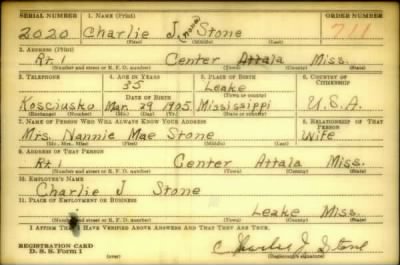 SERIAL NUMBER 1. NAME (Print) ORDER NUMBER
2020 Charlie J. (none) Stone 711
(First) (Middle) (Last)
2. ADDRESS (Print)
Rt. 1 Center Attala Miss.
(Number and street or R. F. D. number) (Town) (County) (State)
3. TELEPHONE 4. AGE IN YEARS 5. PLACE OF BIRTH 6. COUNTRY OF CITIZENSHIP
35 Leake
DATE OF BIRTH (Town or county)
Kosciusko Mar. 29 1905 Mississippi U.S.A.
(Exchange) (Number) (Mo.) (Day) (Yr.) (State or country)
7. NAME OF PERSON WHO WILL ALWAYS KNOW YOUR ADDRESS 8. RELATIONSHIP OF THAT PERSON
Mrs. Nannie Mae Stone Wife
(Mr., Mrs., Miss) (First) (Middle) (Last)
9. ADDRESS OF THAT PERSON
Rt. 1 Center Attala Miss.
(Number and street or R. F. D. number) (Town) (County) (State)
10. EMPLOYER'S NAME
Charlie J Stone
11. PLACE OF EMPLOYMENT OR BUSINESS
Leake Miss.
(Number and street or R. F. D. number) (Town) (County) (State)
I AFFIRM THAT I HAVE VERIFIED ABOVE ANSWERS AND THAT THEY ARE TRUE.
REGISTRATION CARD Charlie J Stone
D. S. S. Form 1 (over) (Registrant's signature)